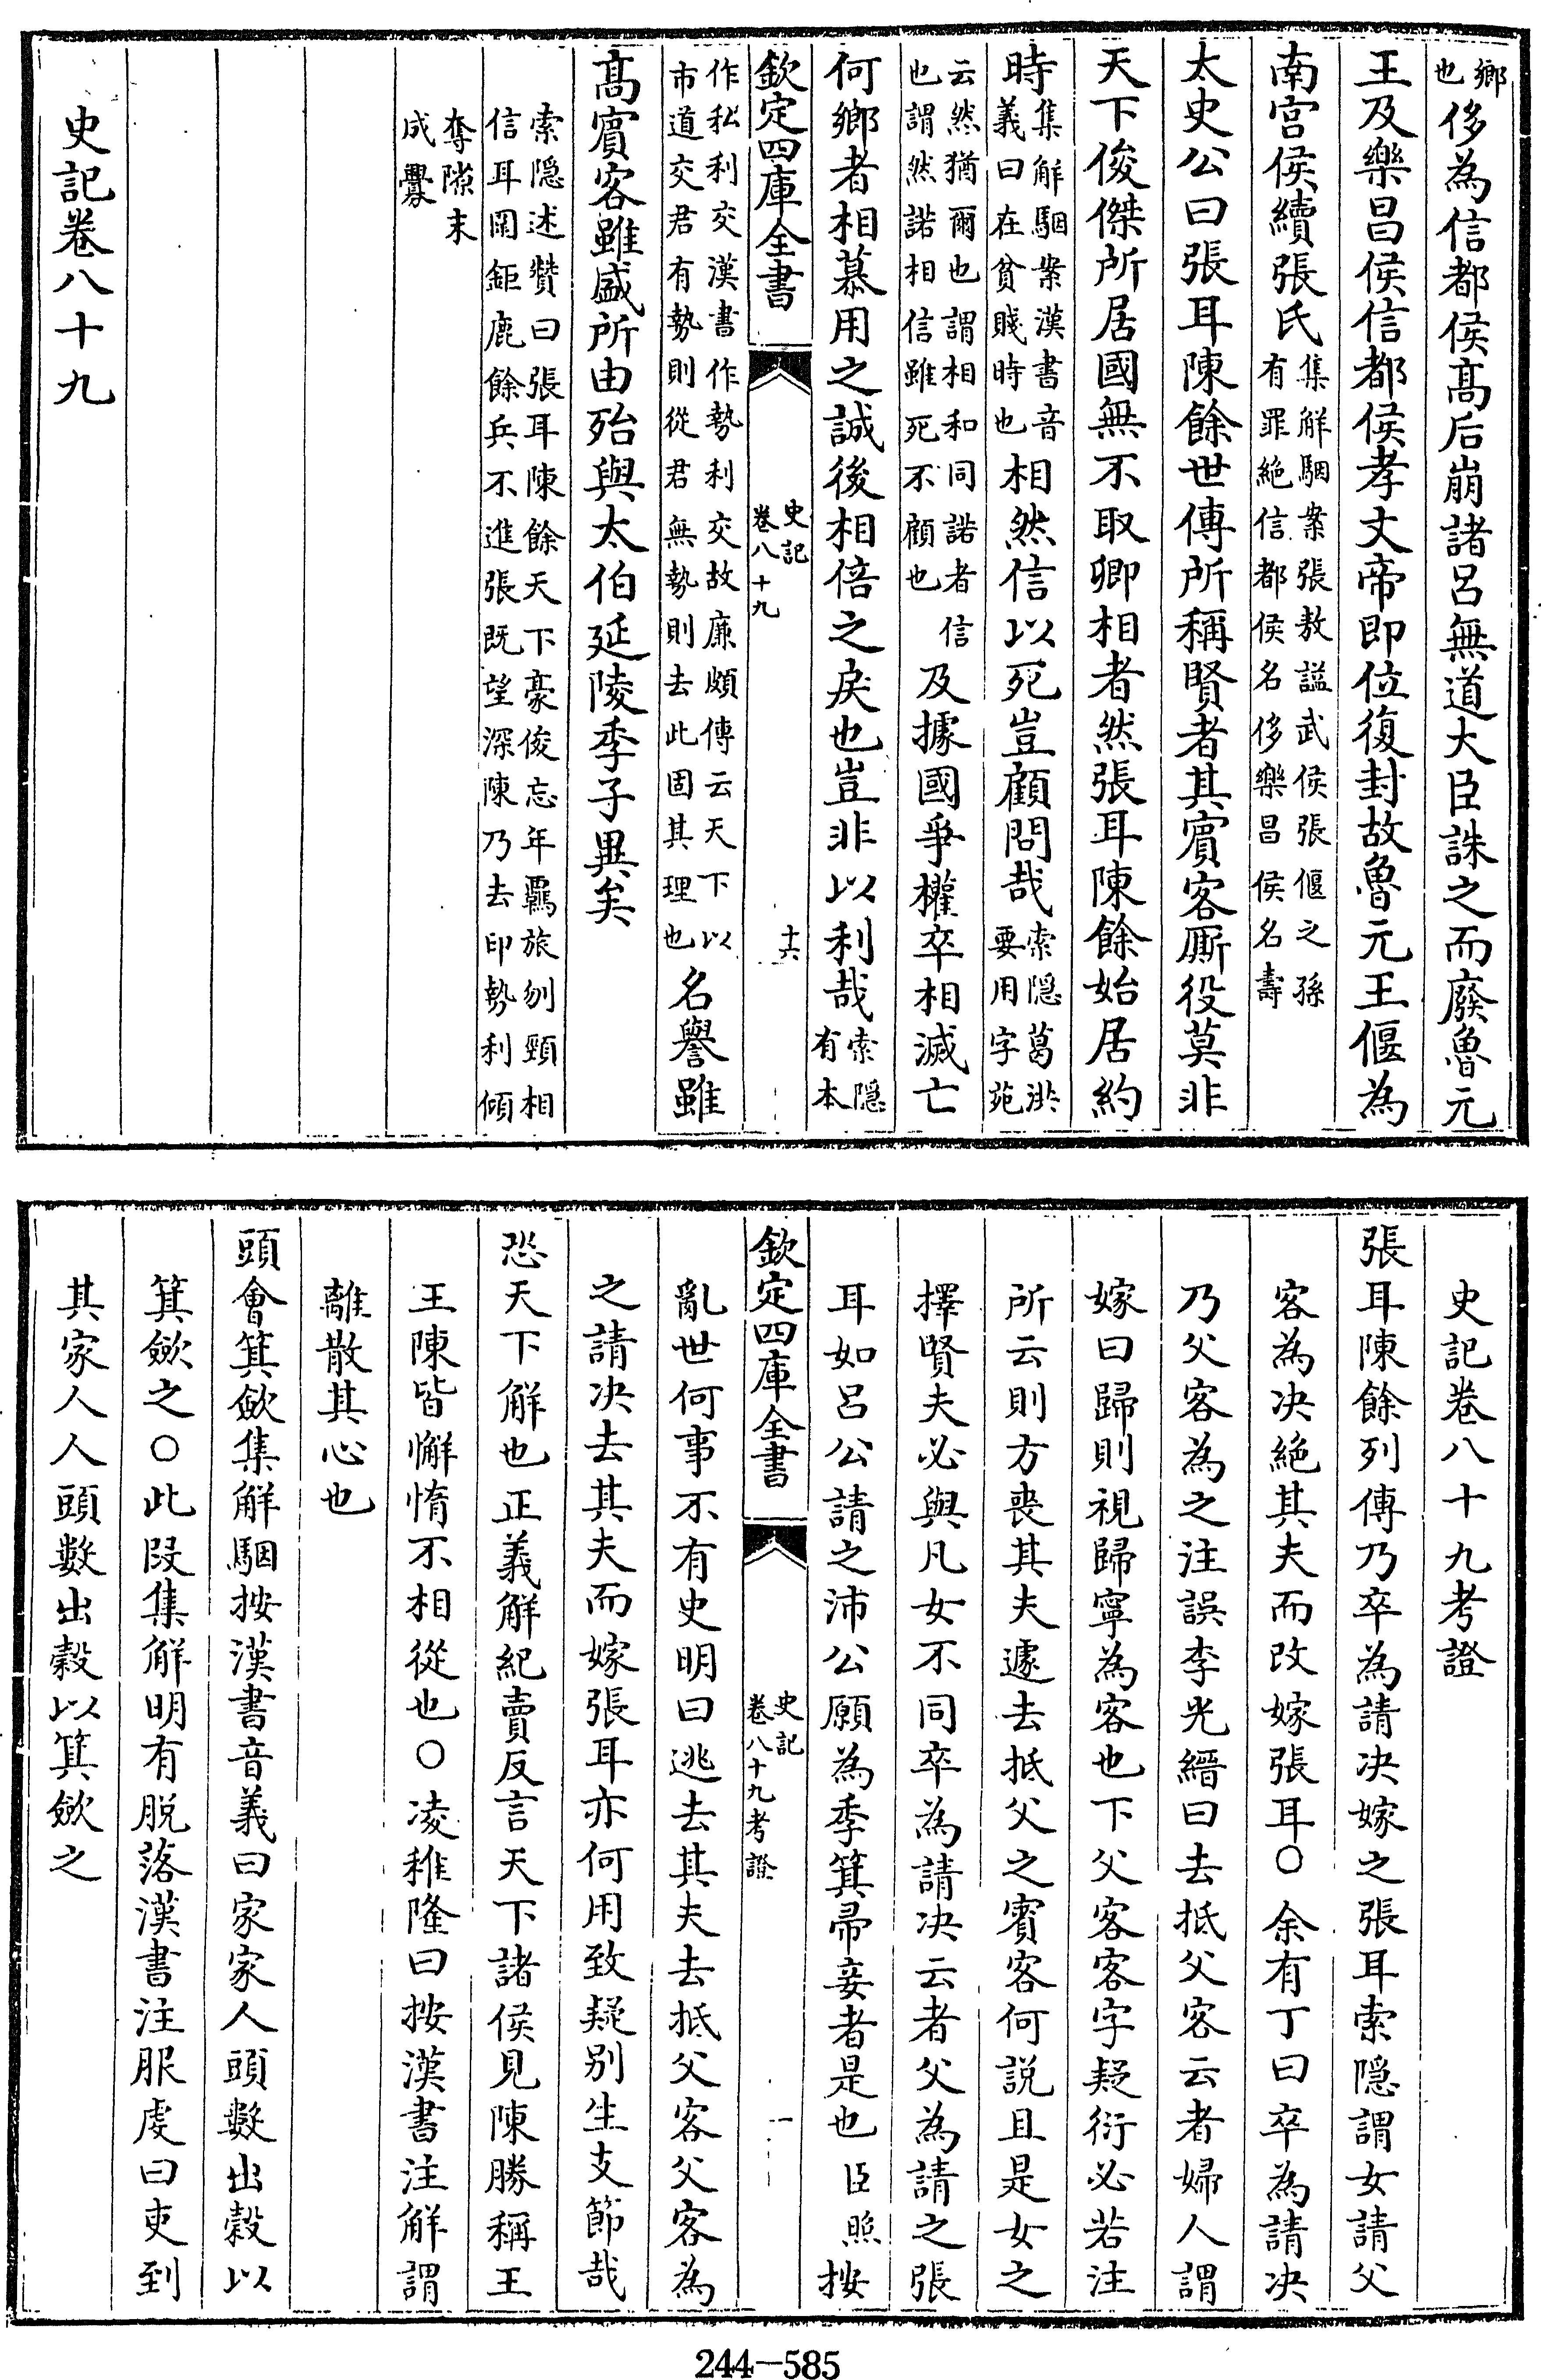 鄉也侈為信都侯髙后崩諸吕無道大臣誅之而廢魯元
王及樂昌侯信都侯孝文帝即位復封故魯元王偃為
南宫侯續張氏集解駰案張敖諡武侯張偃之孫有罪絶信都侯名侈樂昌侯名壽
太史公曰張耳陳餘世傳所稱賢者其賓客厮役莫非
天下俊傑所居國無不取卿相者然張耳陳餘始居約
時集解駰案漢書音義曰在貧賤時也相然信以死豈顧問哉索隠葛洪要用字苑
云然猶爾也謂相和同諾者信也謂然諾相信雖死不顧也及據國爭權卒相滅亡
何鄉者相慕用之誠後相倍之戾也豈非以利哉索隠有本
欽定四庫全書
史記
卷八十九
十六
作私利交漢書作勢利交故㢘頗傳云天下以市道交君有勢則從君無勢則去此固其理也名譽雖
髙賓客雖盛所由殆與太伯延陵季子異矣
索隠述贊曰張耳陳餘天下豪俊忘年羈旅刎頸相信耳圍鉅鹿餘兵不進張既望深陳乃去印勢利傾
奪隙末成釁
史記卷八十九
史記卷八十九考證
張耳陳餘列傳乃卒為請决嫁之張耳索隠謂女請父
客為决絶其夫而改嫁張耳○余有丁曰卒為請决
乃父客為之注誤李光縉曰去抵父客云者婦人謂
嫁曰歸則視歸寧為客也下父客客字疑衍必若注
所云則方喪其夫遽去抵父之賓客何説且是女之
擇賢夫必與凡女不同卒為請决云者父為請之張
耳如吕公請之沛公願為季箕帚妾者是也臣照按
欽定四庫全書
史記
卷八十九考證
一
亂世何事不有史明曰逃去其夫去抵父客父客為
之請决去其夫而嫁張耳亦何用致疑别生支節哉
恐天下解也正義解紀賣反言天下諸侯見陳勝稱王
王陳皆懈惰不相從也○凌稚隆曰按漢書注解謂
離散其心也
頭會箕歛集解駰按漢書音義曰家家人頭數出穀以
箕歛之○此段集解明有脱落漢書注服䖍曰吏到
其家人人頭數出穀以箕歛之
244—585